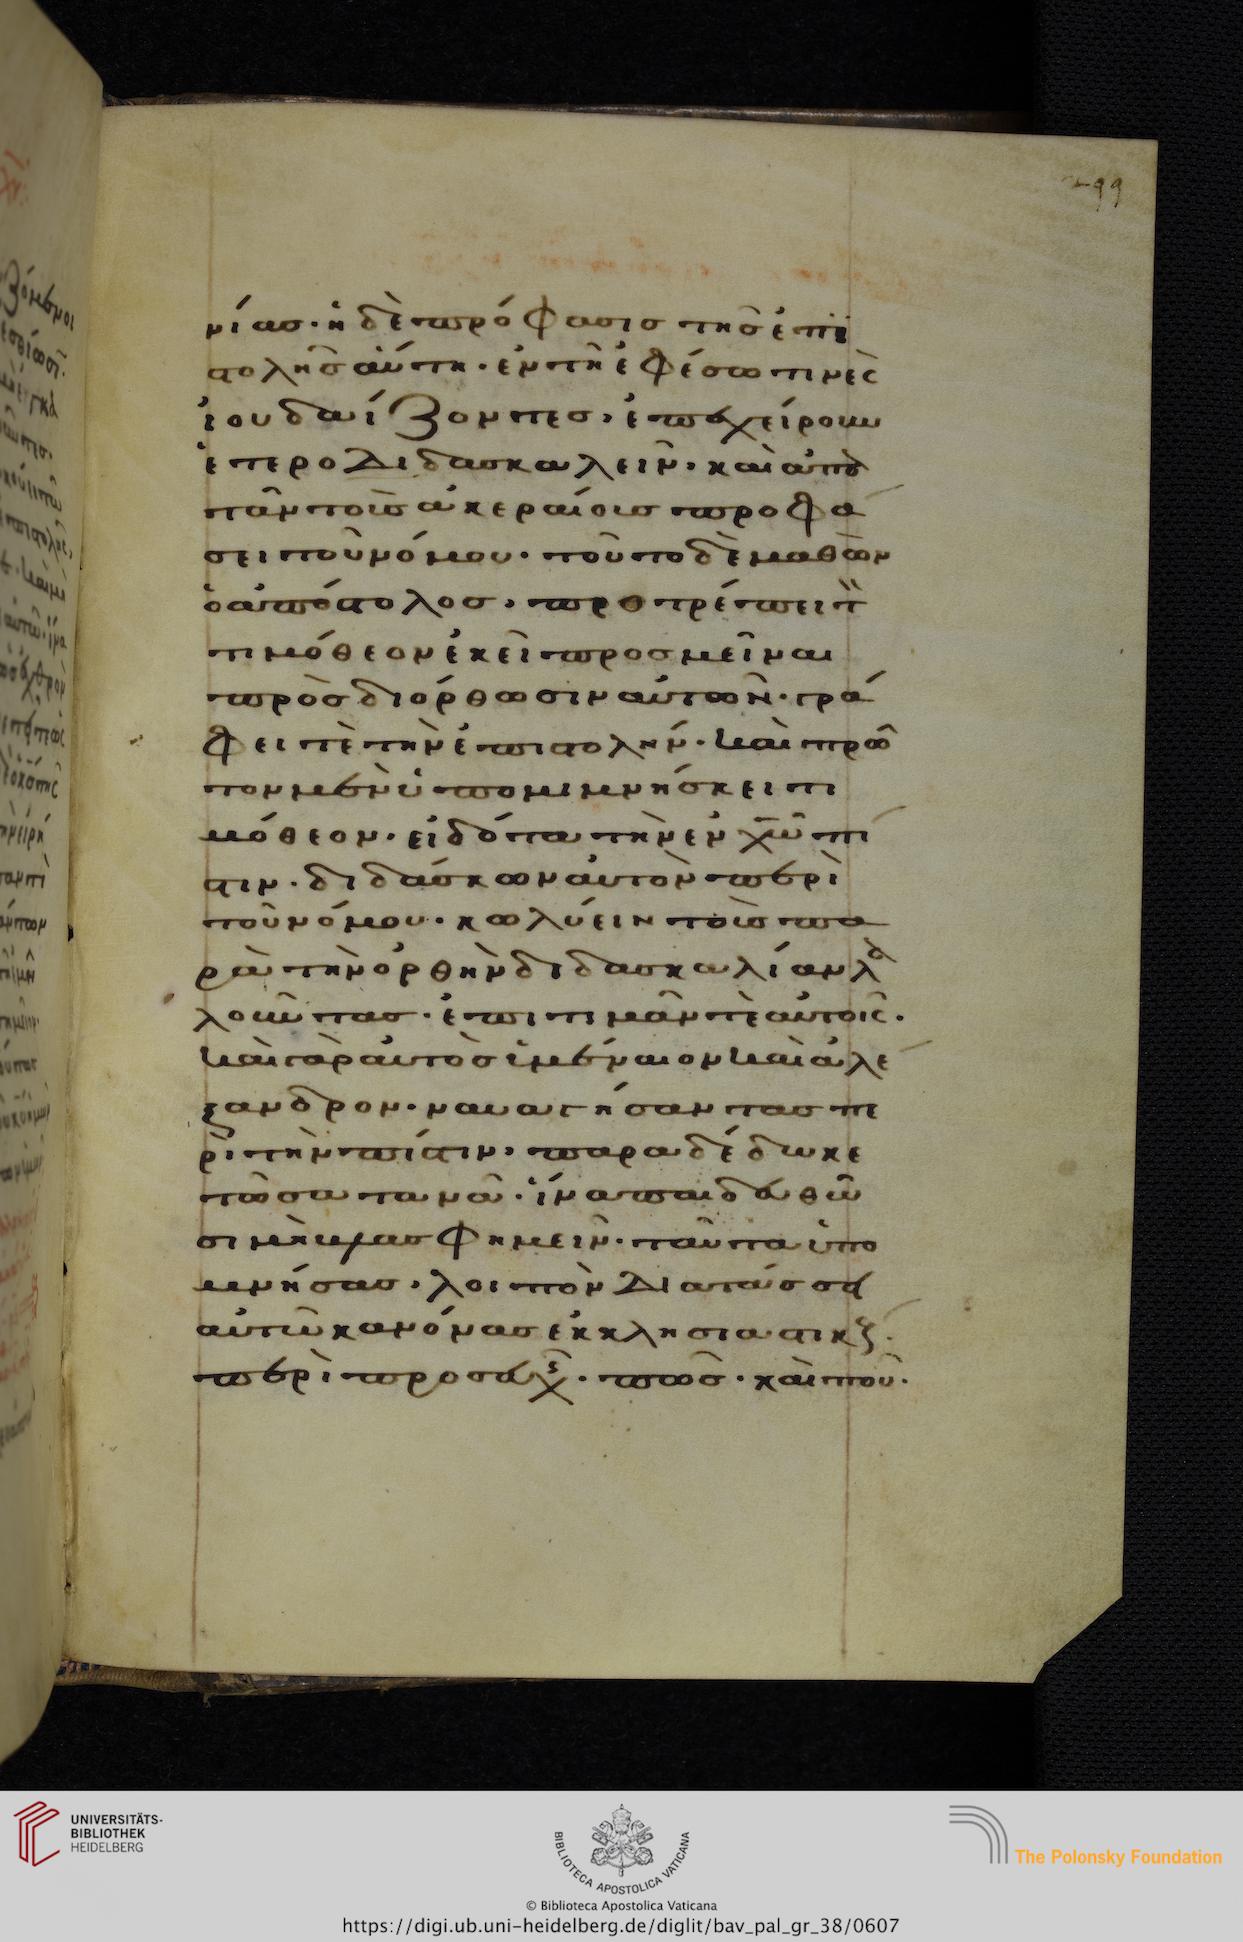 299
νίας· ἡ δὲ πρόφασις τῆς ἐπι
στολῆς αὕτη· ἐν τῇ ἐφέσω τινὲς
ἰουδαΐζοντες, ἐπεχείρουν
ἑτεροδιδασκαλεῖν· καὶ ἀπὸ
πᾶν τοῖς ἀκεραίοις προφά
σει τοῦ νόμου· τοῦτο δὲ μαθὼν
ὁ ἀπόστολος, προτρέπει τ
τιμόθεον ἐκεῖ προσμεῖναι
πρὸς διόρθωσιν αὐτῶν· γρά
φει τὲ τὴν ἐπιστολήν· καὶ πρῶ
τον μὲν ὑπομιμνήσκει τι
μόθεον· εἰδότα τὴν ἐν χῶ πί
στιν· διδάσκων αὐτὸν περὶ
τοῦ νόμου· κωλύειν τοὺς πα
ρὰ τὴν ὀρθὴν διδασκαλίαν λα
λοῦντας· ἐπιτιμᾶν τὲ αὐτοῖς·
καὶ γὰρ αὐτὸς ὑμέναιον καὶ ἀλέ
ξανδρον· ναυαγήσαντας πε
ρὶ τὴν πίστιν, παραδέδωκε
τῶ σατανᾶ· ἵνα παιδευθῶ
σι μὴ βλασφημεῖν· ταῦτα ὑπο
μνήσας, λοιπὸν διατάσσει
αὐτῶ κανόνας ἐκκλησιαστικούς·
περὶ προσευχῆς· πῶς· καὶ ποῦ·
UNIVERSITÄTS-
BIBLIOTHEK
HEIDELBERG
BIBLIOTECA APOSTOLICA VATICANA
The Polonsky Foundation
© Biblioteca Apostolica Vaticana
https://digi.ub.uni-heidelberg.de/diglit/bav_pal_gr_38/0607